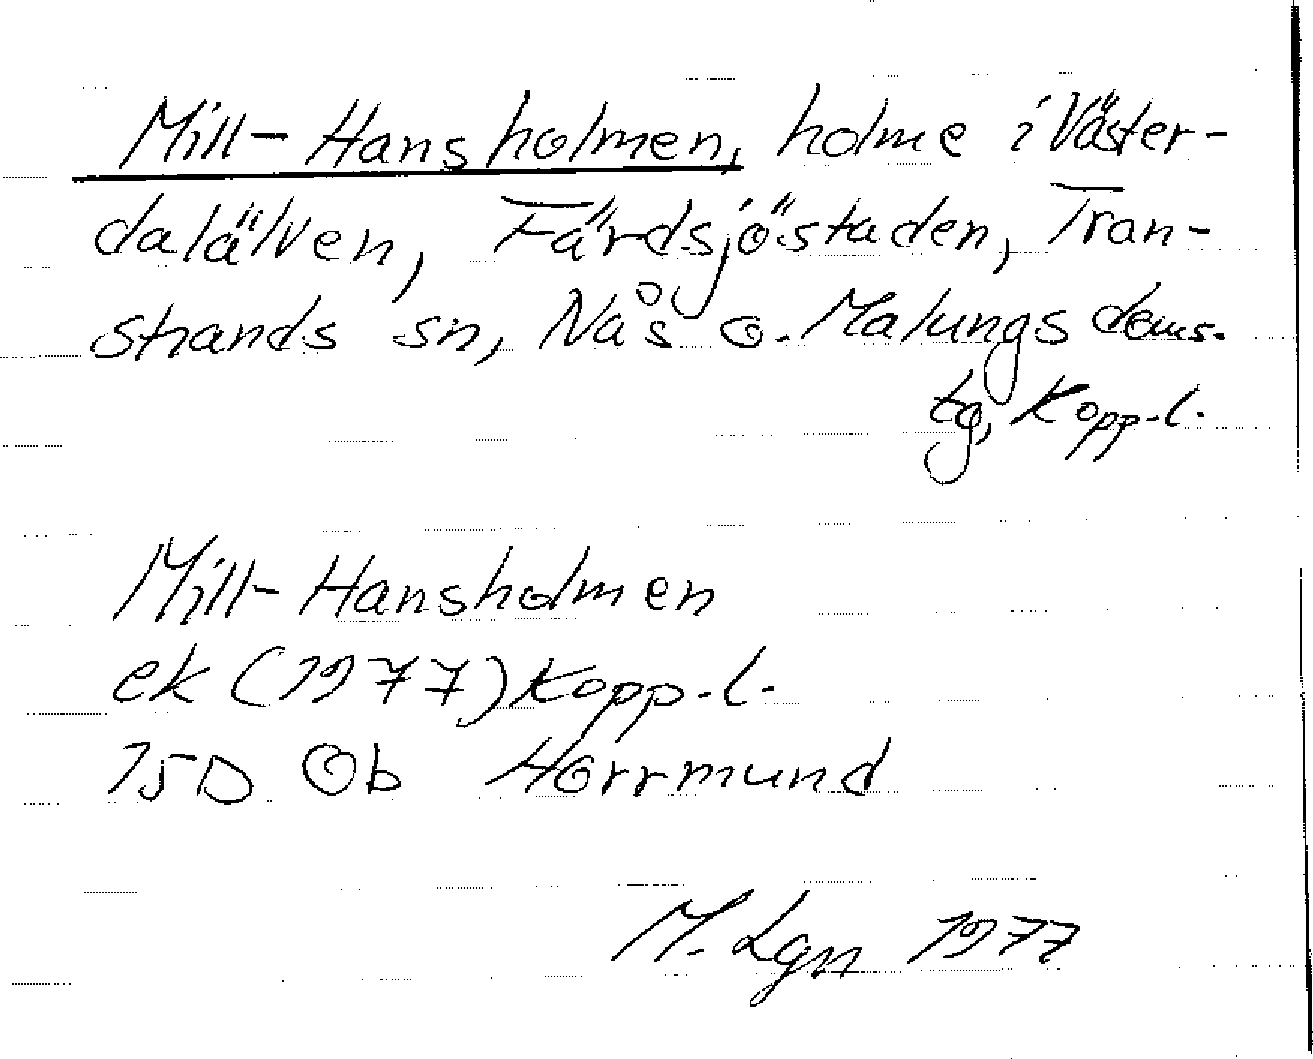 Mill-Hansholmen, holme i Väster-
dalälven, Färdsjöstaden, Tran-
strands sn, Nås o. Malungs doms.
tg, Kopp.l.
Mill-Hansholmen
ek (1977) Kopp.l.
15D Ob Horrmund
M. Lgn 1977